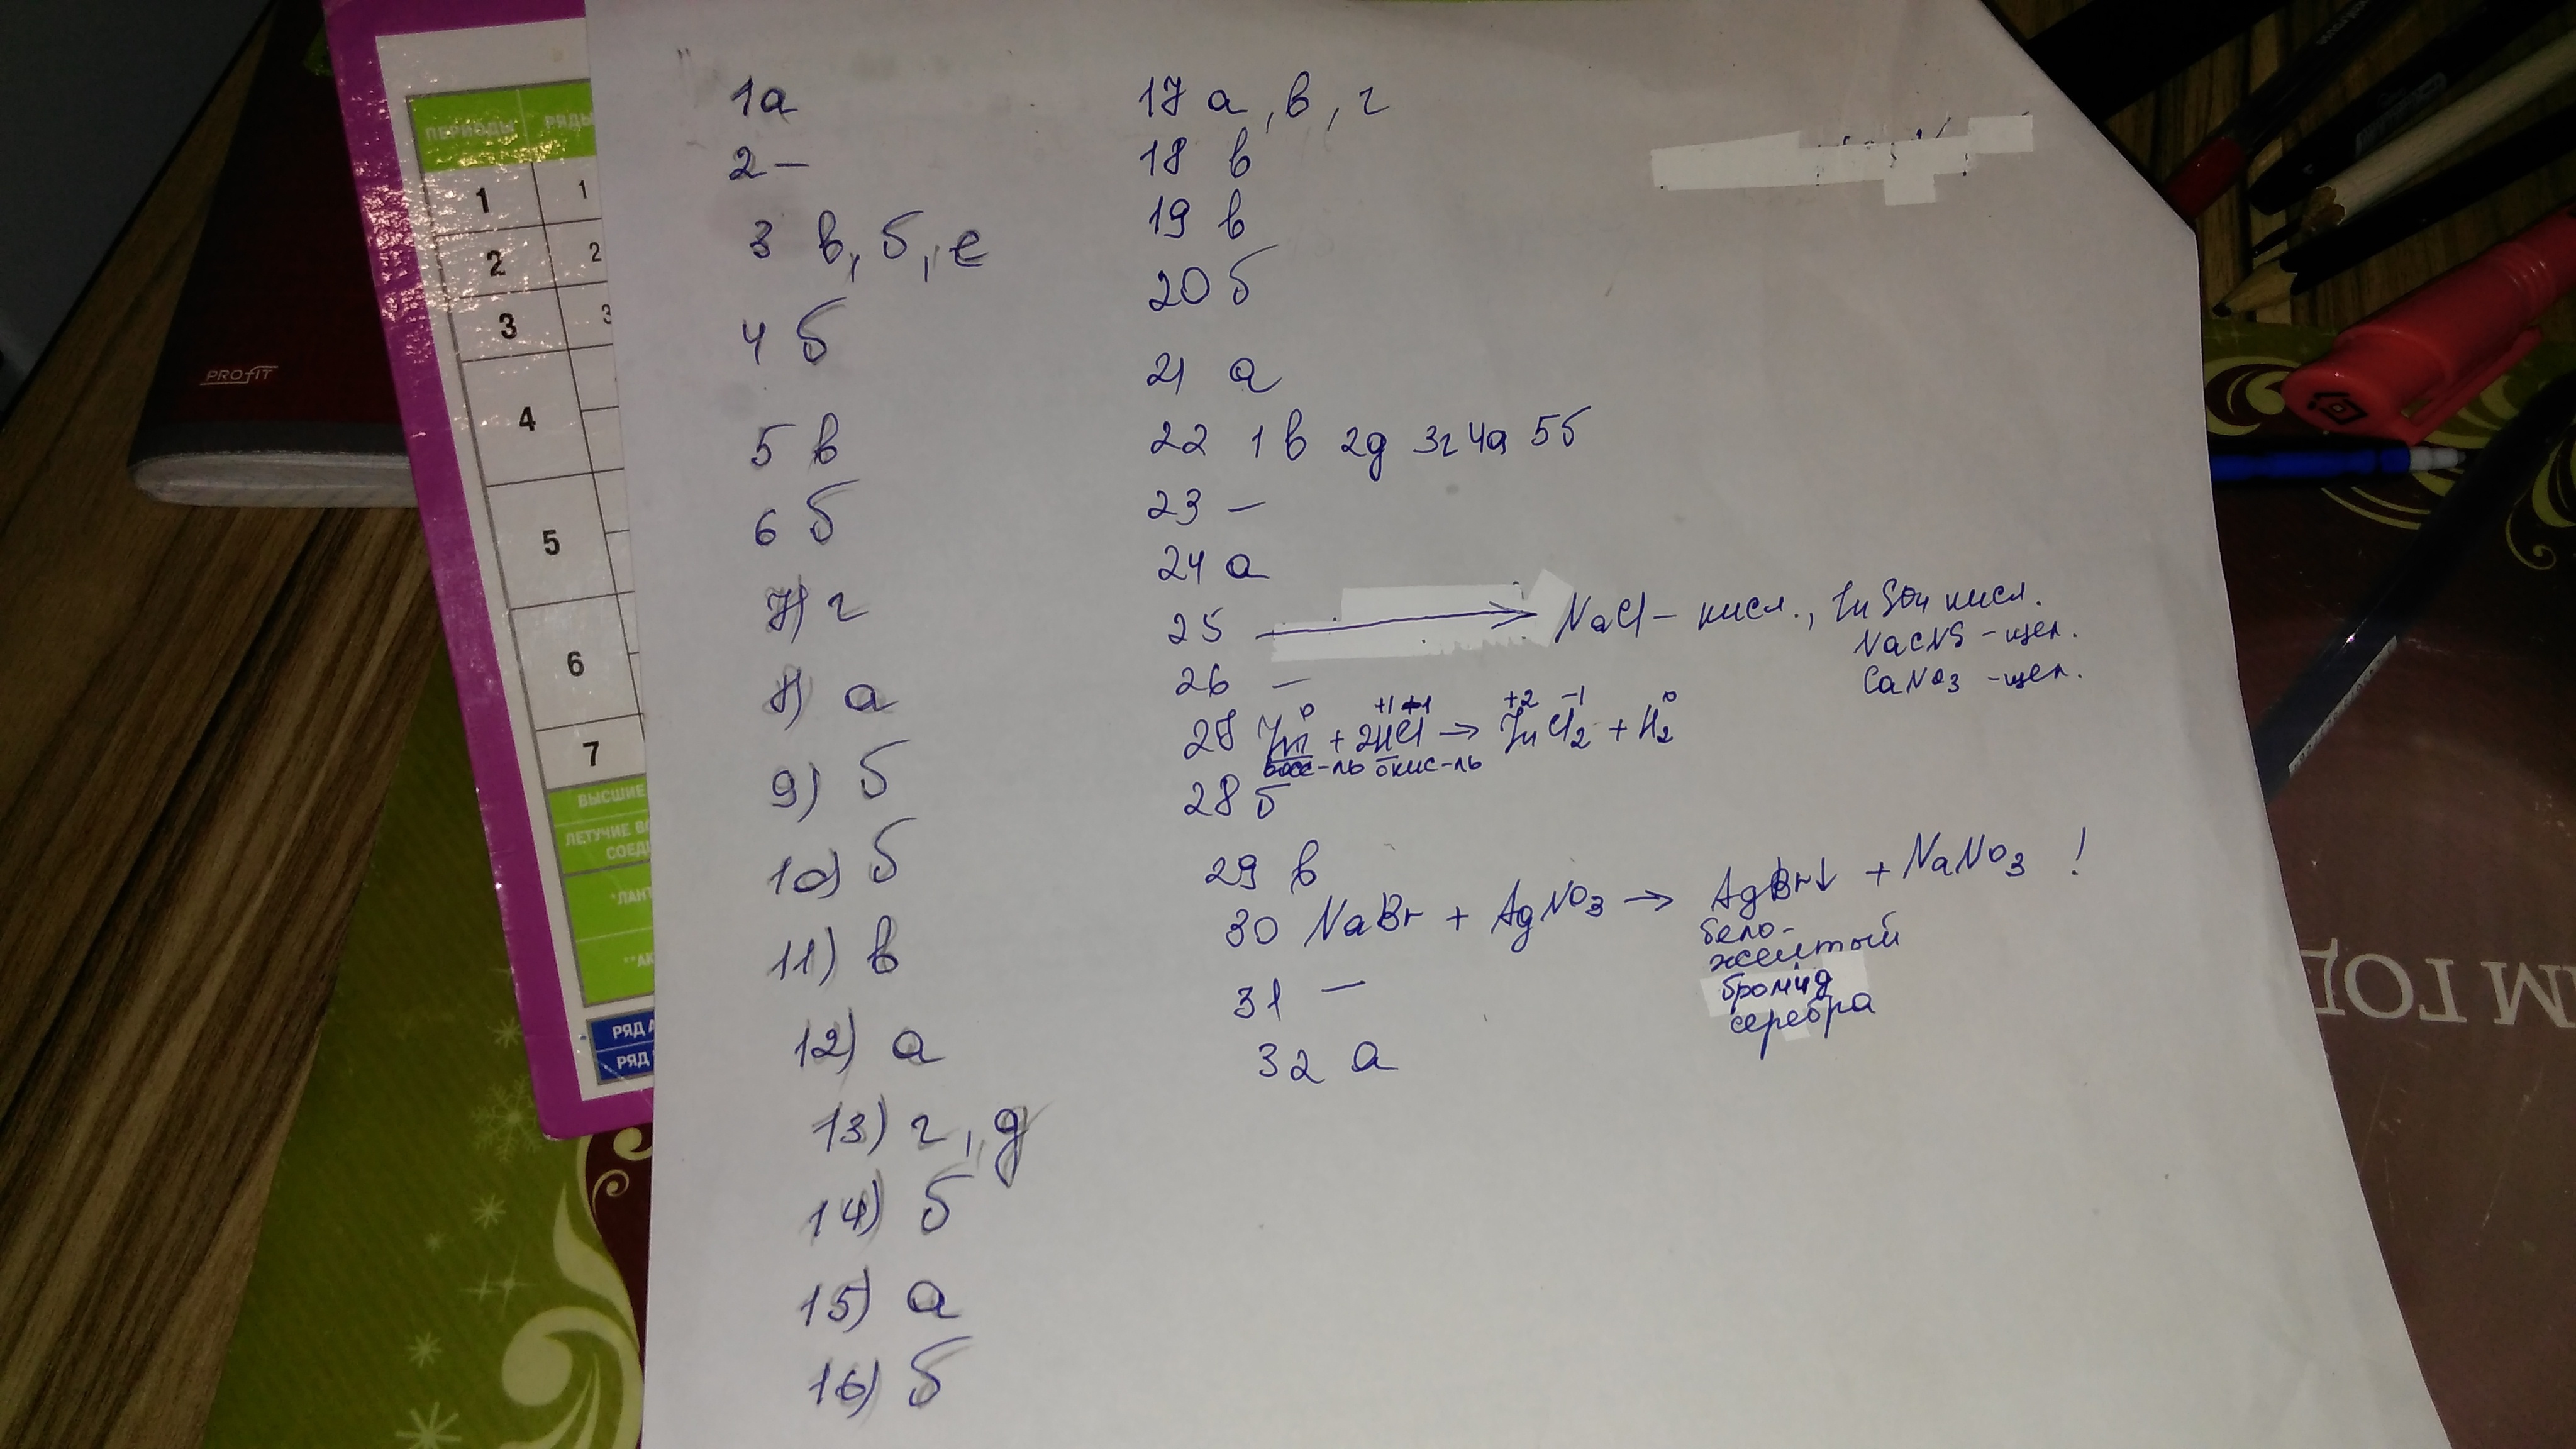 1а
2 –
3 в, б, е
4 б
5 в
6 б
7) г
8) а
9) б
10) б
11) в
12) а
13) г, д
14) б
15) а
16) б
17 а, в, г
18 в
19 в
20 б
21 а
22 1в 2д 3г 4а 5б
23 –
24 а
25 → NaCl – кисл., ZnSO4 кисл.
NaCNS – щел.
CaNO3 – щел.
26 –
0 +1 -1 +2 -1 0
27 Zn + 2HCl → ZnCl2 + H2
восс-ль окис-ль
28 б
29 в
30 NaBr + AgNO3 → AgBr↓ + NaNO3 !
бело-
желтый
бромид
серебра
31 –
32 а
ПЕРИОДЫ РЯДЫ
1 1
2 2
3 3
4
5
6
7
ВЫСШИЕ
ЛЕТУЧИЕ
СОЕД
*ЛАНТ
**АК
РЯД А
РЯД
PROFIT
М ГОД